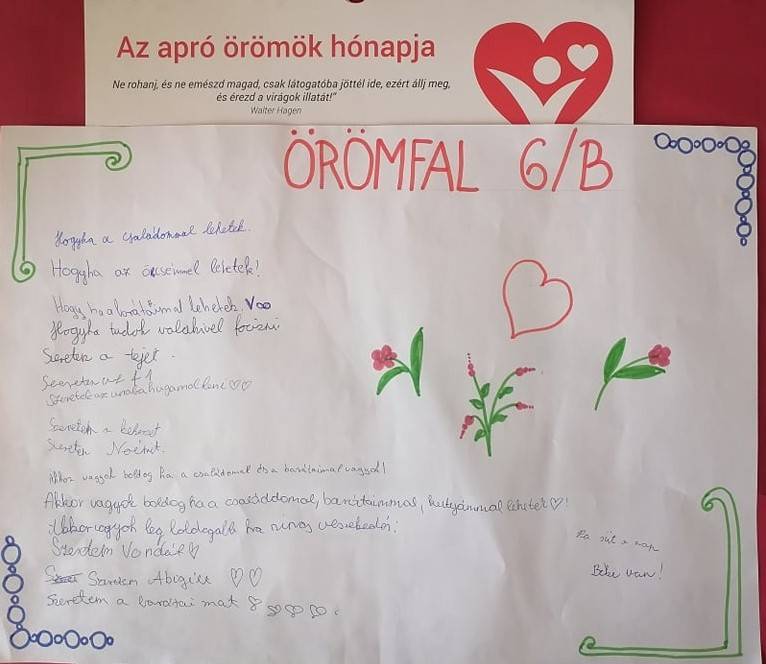 Az apró örömök hónapja
Ne rohanj, és ne emészd magad, csak látogatóba jöttél ide, ezért állj meg,
és érezd a virágok illatát!"
Walter Hagen
ÖRÖMFAL 6/B
Hogyha a családommal lehetek.
Hogyha az öcseimmel lehetek!
Hogy ha a barátaimmal lehetek.
Hogyha tudok valakivel focizni
Szeretek a tejet.
Szeretem az f1
Szeretek az unokahugamal lenni ♡♡
Szeretem a
Szeretem Noémit.
Akkor vagyok boldog ha a családomal és a barátaimal vagyok!
Akkor vagyok boldog ha a családdomal, barátaimmal, kutyámmal lehetek ♡!
Akkor vagyok leg boldogabb ha nincs veszekedés!
Szeretem Vandát ♡
Szeretem Abigélt ♡♡
Szeretem a barátai mat
Ha süt a nap
Béke van!